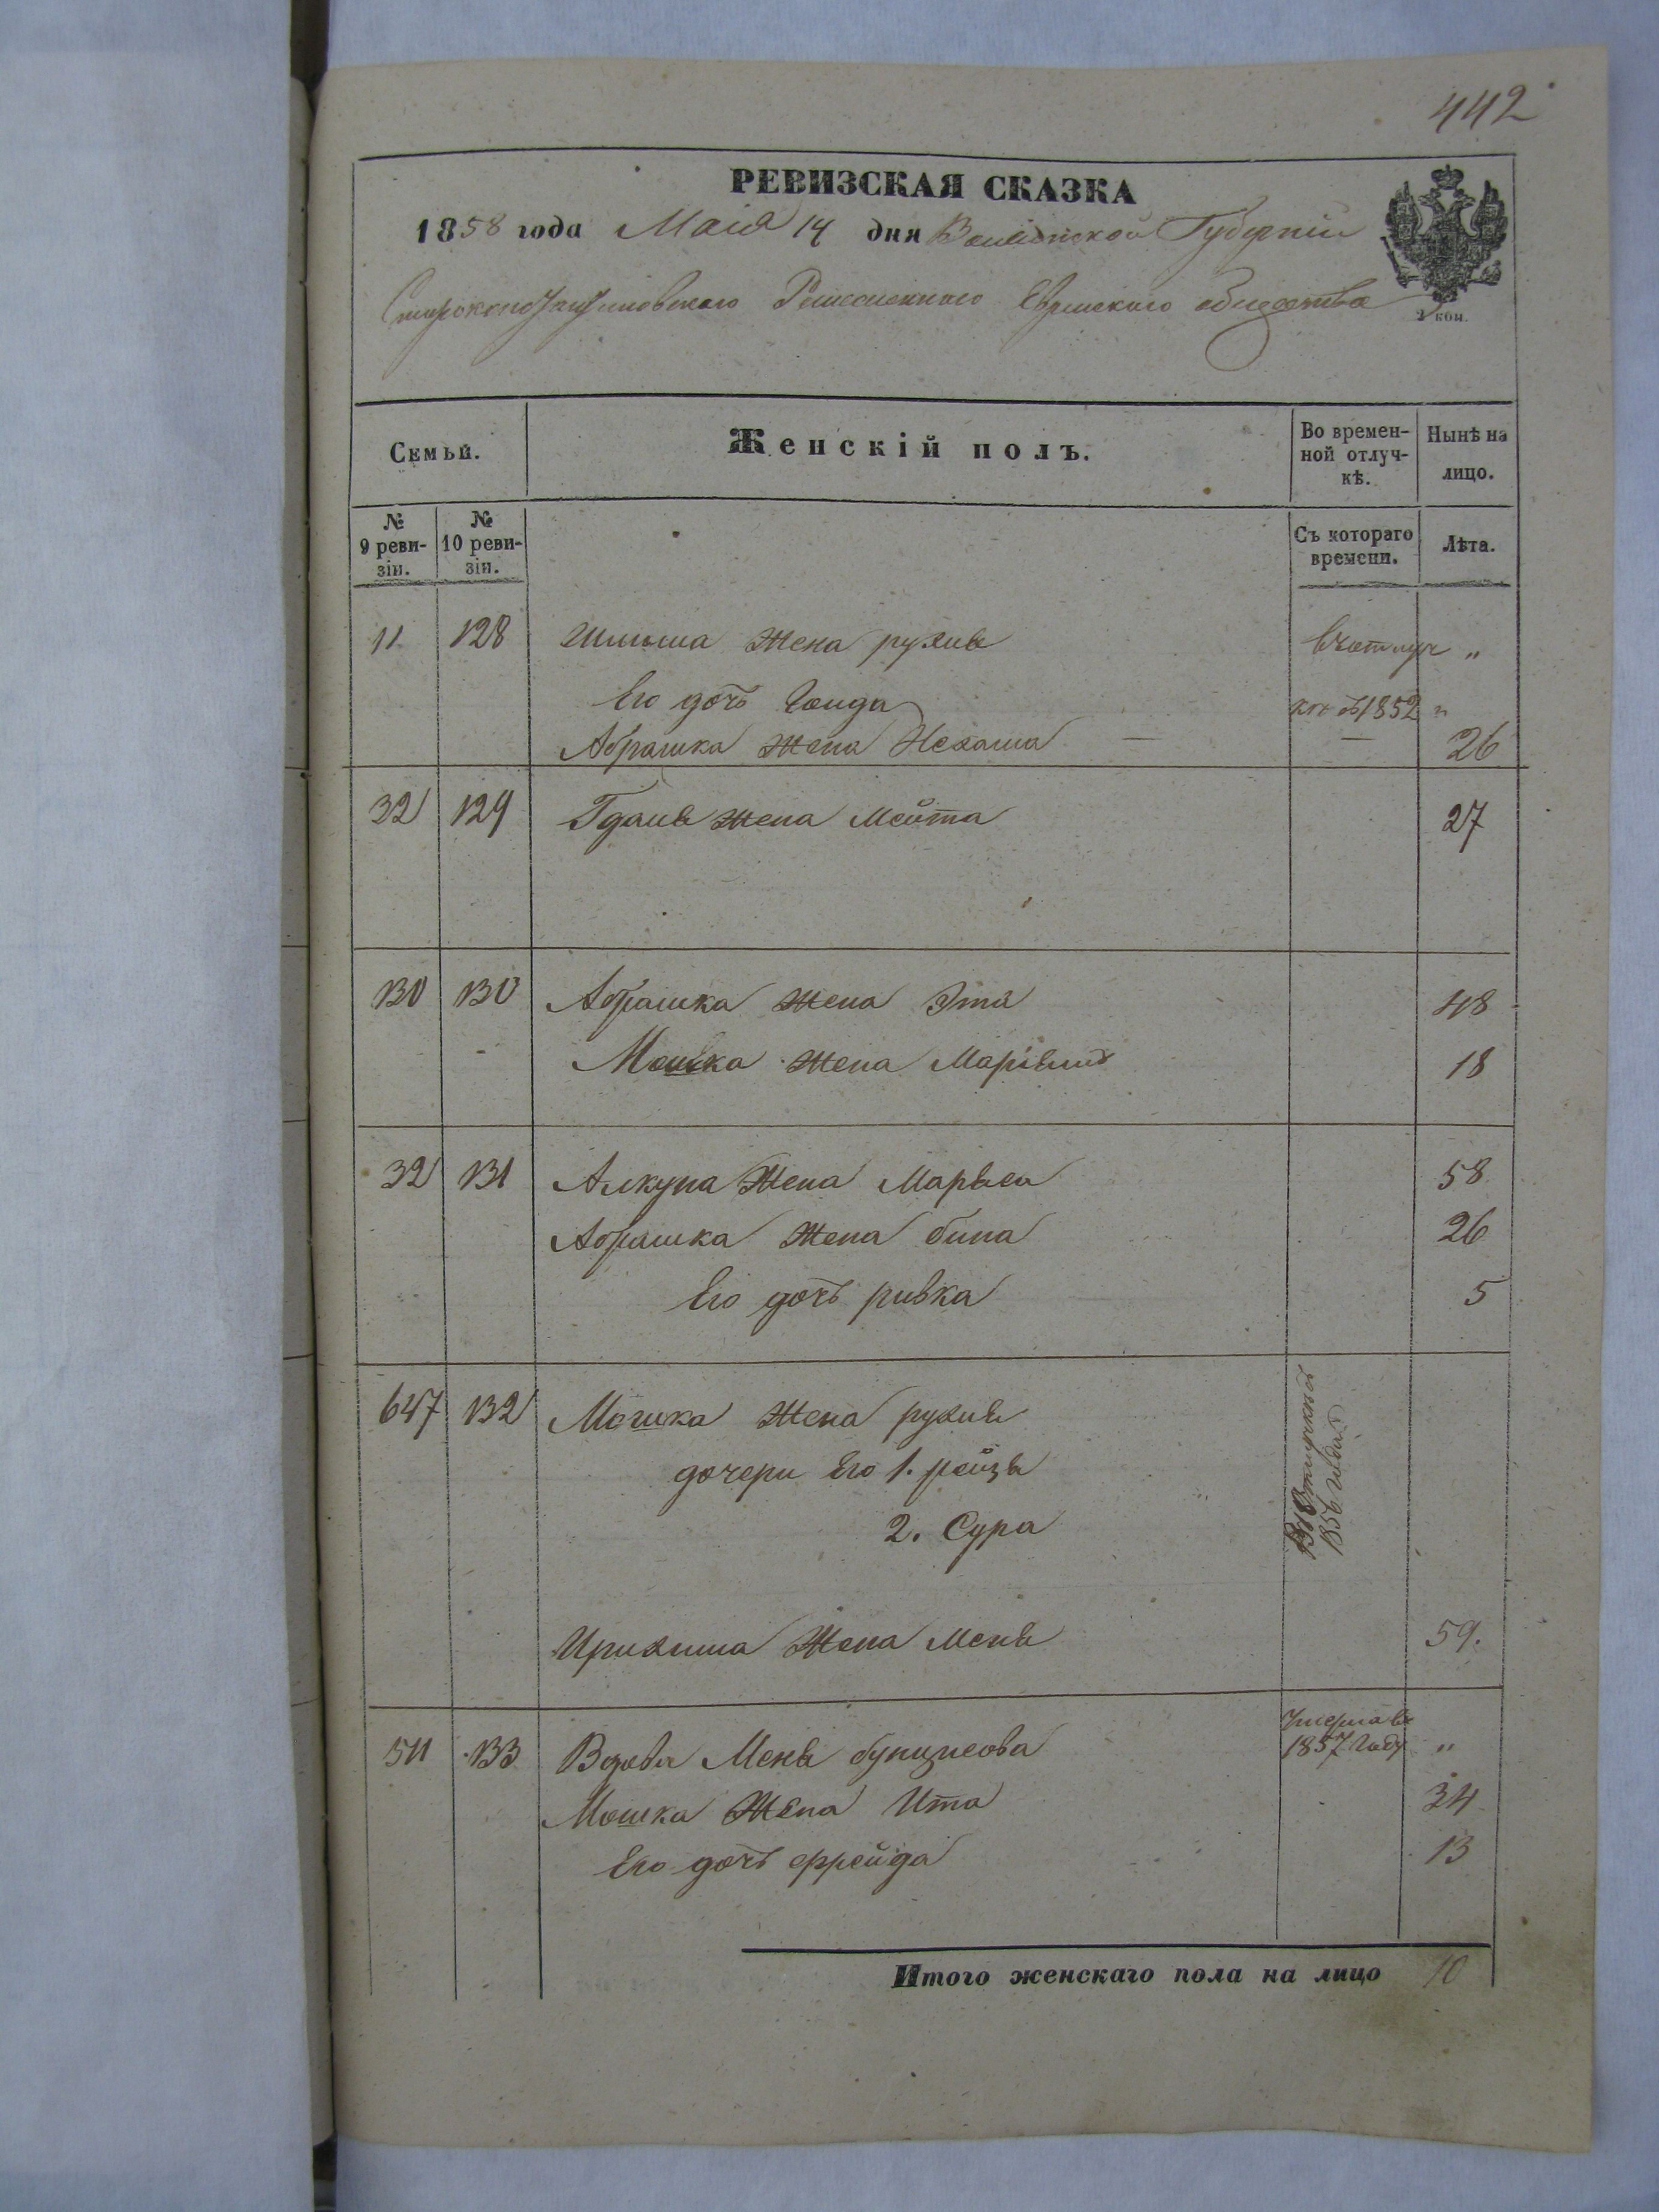 442
РЕВИЗСКАЯ СКАЗКА
1858 года Маія 14 дня Волынской Губерніи
Староконстантиновскаго Еврейскаго общества
2 коп.
Семьи. Женскій полъ. Во временной отлучкѣ. Нынѣ на лицо.
№ 9 ревизіи. № 10 ревизіи. Съ котораго времени. Лѣта.
11 128 Жена рухля "
Его дочь 1852 "
Абрашка Жена Нехама — — 26
32 129 Жена Мейта 27
130 130 Абрашка Жена Эта 48
Мошка Жена 18
32 131 Жена Марьем 58
Абрашка Жена бина 26
Его дочь ривка 5
647 132 Мошка Жена рухля
дочери Его 1. рейзя
2. Сура
1856 года
Жена Меня 59.
511 133 Вдова Меня Умерла в
1857 Году "
Мошка Жена Ита 34
Его дочь фрейда 13
Итого женскаго пола на лицо 10